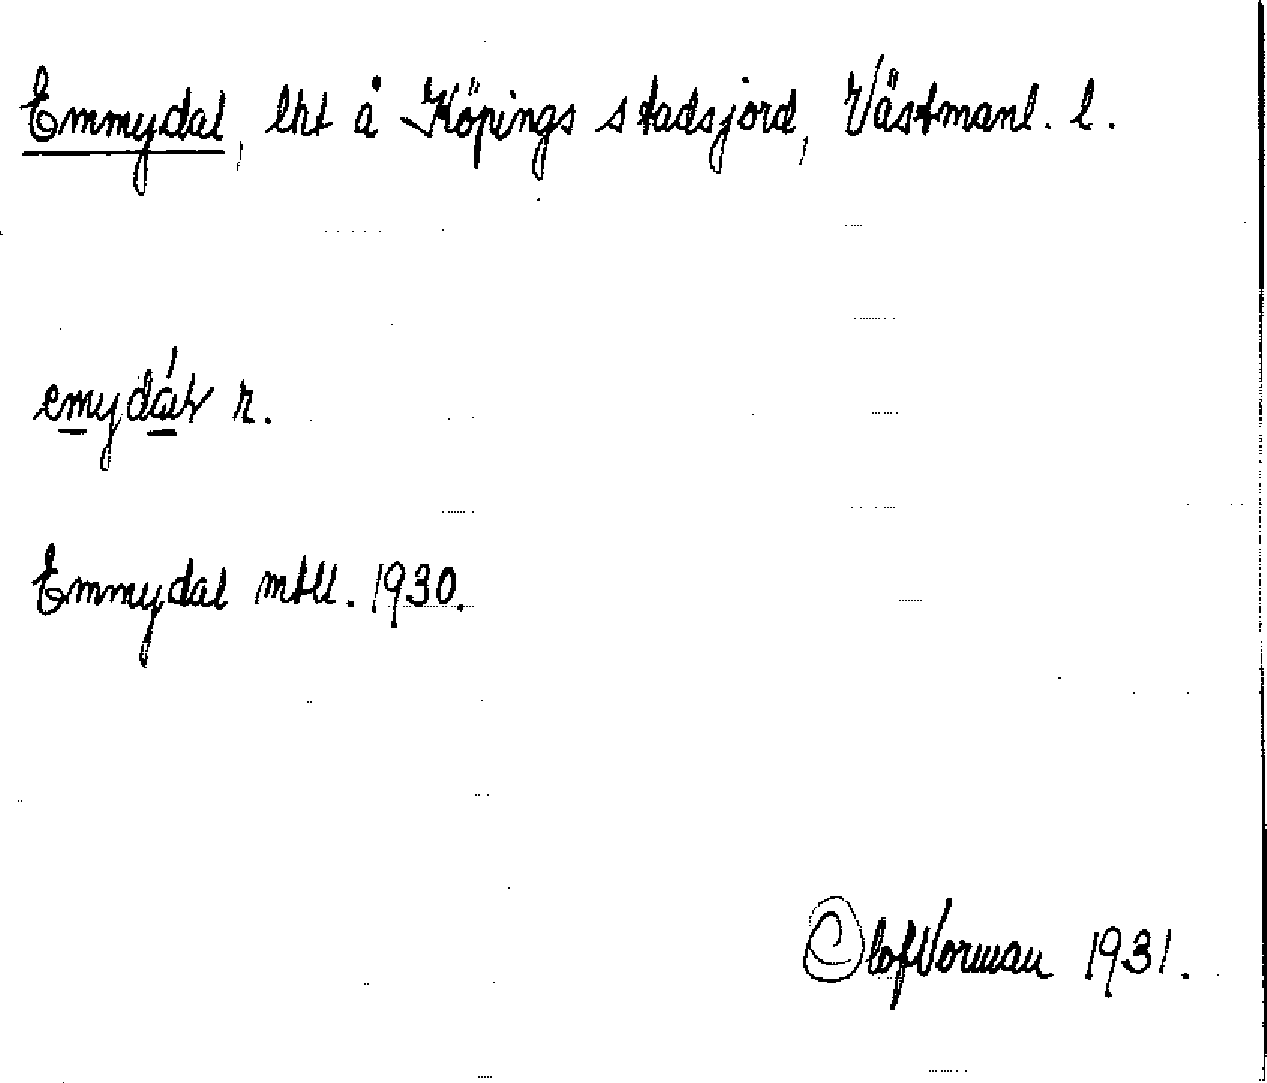 Emmydal, lht å Köpings stadsjord, Västmanl. l.
emydál r.
Emmydal mtll. 1930.
Olof Vorman 1931.